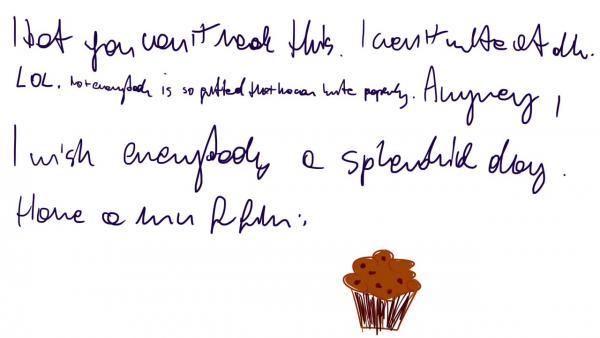 I bet you can't read this. I can't write at all.
LOL. Not everybody is so gifted that he can write properly. Anyway,
I wish everybody a splendid day.
Have a